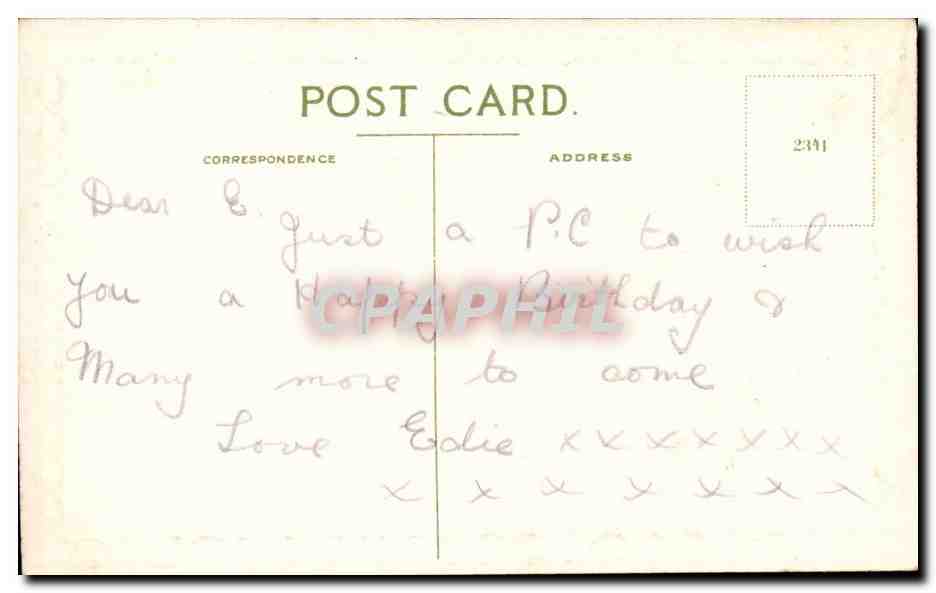 POST CARD.
CORRESPONDENCE
ADDRESS
2341
Dear E.
Just a P.C to wish
you a Happy Birthday &
Many more to come
Love Edie x x x x x x x
x x x x x x x
CPAPHIL